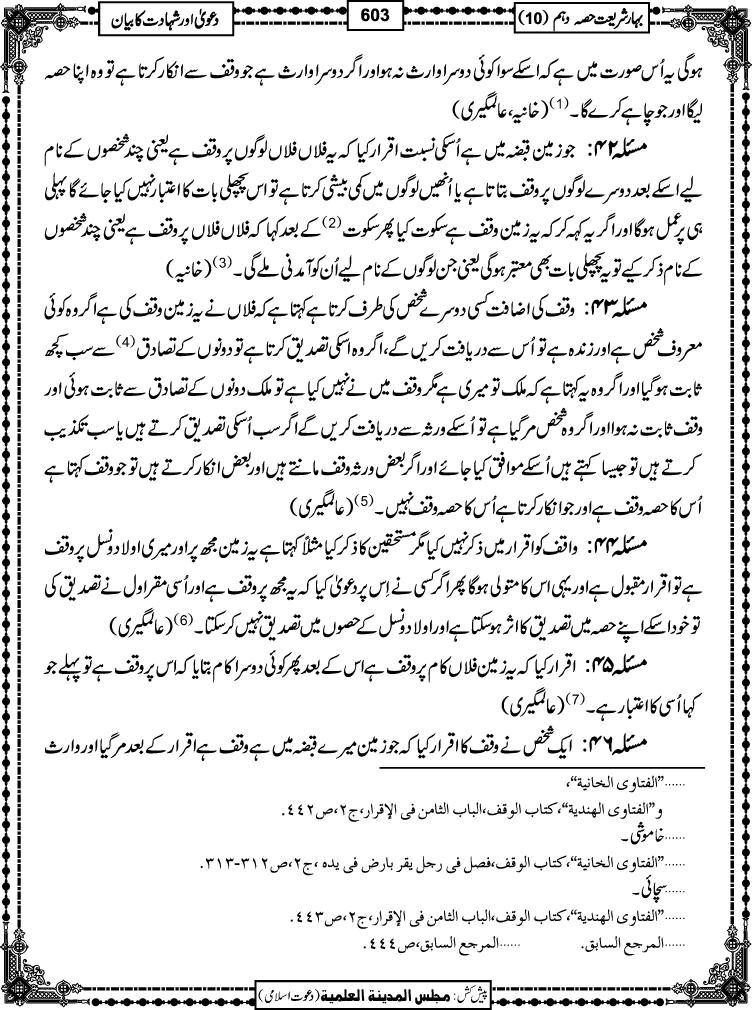 بہار شریعت حصہ دہم (10)
603
دعویٰ اور شہادت کا بیان
ہوگی یہ اُس صورت میں ہے کہ اسکے سوا کوئی دوسرا وارث نہ ہو اور اگر دوسرا وارث ہے جو وقف سے انکار کرتا ہے تو وہ اپنا حصہ
لیگا اور جو چاہے کرے گا۔(1) (خانیہ، عالمگیری)
مسئلہ ۴۲: جو زمین قبضہ میں ہے اُسکی نسبت اقرار کیا کہ یہ فلاں فلاں لوگوں پر وقف ہے یعنی چند شخصوں کے نام
لیے اسکے بعد دوسرے لوگوں پر وقف بتاتا ہے یا اُنھیں لوگوں میں کمی بیشی کرتا ہے تو اس پچھلی بات کا اعتبار نہیں کیا جائے گا پہلی
ہی پر عمل ہوگا اور اگر یہ کہہ کر کہ یہ زمین وقف ہے سکوت کیا پھر سکوت(2) کے بعد کہا کہ فلاں فلاں پر وقف ہے یعنی چند شخصوں
کے نام ذکر کیے تو یہ پچھلی بات بھی معتبر ہوگی یعنی جن لوگوں کے نام لیے اُن کو آمدنی ملے گی۔(3) (خانیہ)
مسئلہ ۴۳: وقف کی اضافت کسی دوسرے شخص کی طرف کرتا ہے کہتا ہے کہ فلاں نے یہ زمین وقف کی ہے اگر وہ کوئی
معروف شخص ہے اور زندہ ہے تو اُس سے دریافت کریں گے، اگر وہ اسکی تصدیق کرتا ہے تو دونوں کے تصادق(4) سے سب کچھ
ثابت ہوگیا اور اگر وہ یہ کہتا ہے کہ ملک تو میری ہے مگر وقف میں نے نہیں کیا ہے تو ملک دونوں کے تصادق سے ثابت ہوئی اور
وقف ثابت نہ ہوا اور اگر وہ شخص مر گیا ہے تو اُسکے ورثہ سے دریافت کریں گے اگر سب اُسکی تصدیق کرتے ہیں یا سب تکذیب
کرتے ہیں تو جیسا کہتے ہیں اُسکے موافق کیا جائے اور اگر بعض ورثہ وقف مانتے ہیں اور بعض انکار کرتے ہیں تو جو وقف کہتا ہے
اُس کا حصہ وقف ہے اور جو انکار کرتا ہے اُس کا حصہ وقف نہیں۔(5) (عالمگیری)
مسئلہ ۴۴: واقف کو اقرار میں ذکر نہیں کیا مگر مستحقین کا ذکر کیا مثلاً کہتا ہے یہ زمین مجھ پر اور میری اولاد و نسل پر وقف
ہے تو اقرار مقبول ہے اور یہی اس کا متولی ہوگا پھر اگر کسی نے اِس پر دعویٰ کیا کہ یہ مجھ پر وقف ہے اور اُسی مقر اول نے تصدیق کی
تو خود اسکے اپنے حصہ میں تصدیق کا اثر ہوسکتا ہے اور اولاد و نسل کے حصوں میں تصدیق نہیں کرسکتا۔(6) (عالمگیری)
مسئلہ ۴۵: اقرار کیا کہ یہ زمین فلاں کام پر وقف ہے اس کے بعد پھر کوئی دوسرا کام بتایا کہ اس پر وقف ہے تو پہلے جو
کہا اُسی کا اعتبار ہے۔(7) (عالمگیری)
مسئلہ ۴۶: ایک شخص نے وقف کا اقرار کیا کہ جو زمین میرے قبضہ میں ہے وقف ہے اقرار کے بعد مر گیا اور وارث
......”الفتاوی الخانیة“،
و”الفتاوی الھندیة“، کتاب الوقف، الباب الثامن فی الإقرار، ج۲، ص۴۴۲.
......خاموشی۔
......”الفتاوی الخانیة“، کتاب الوقف، فصل فی رجل یقر بارض فی یدہ، ج۲، ص۳۱۲-۳۱۳.
......سچائی۔
......”الفتاوی الھندیة“، کتاب الوقف، الباب الثامن فی الإقرار، ج۲، ص۴۴۳.
......المرجع السابق. ......المرجع السابق، ص۴۴۴.
پیش کش: مجلس المدينة العلمية (دعوت اسلامی)